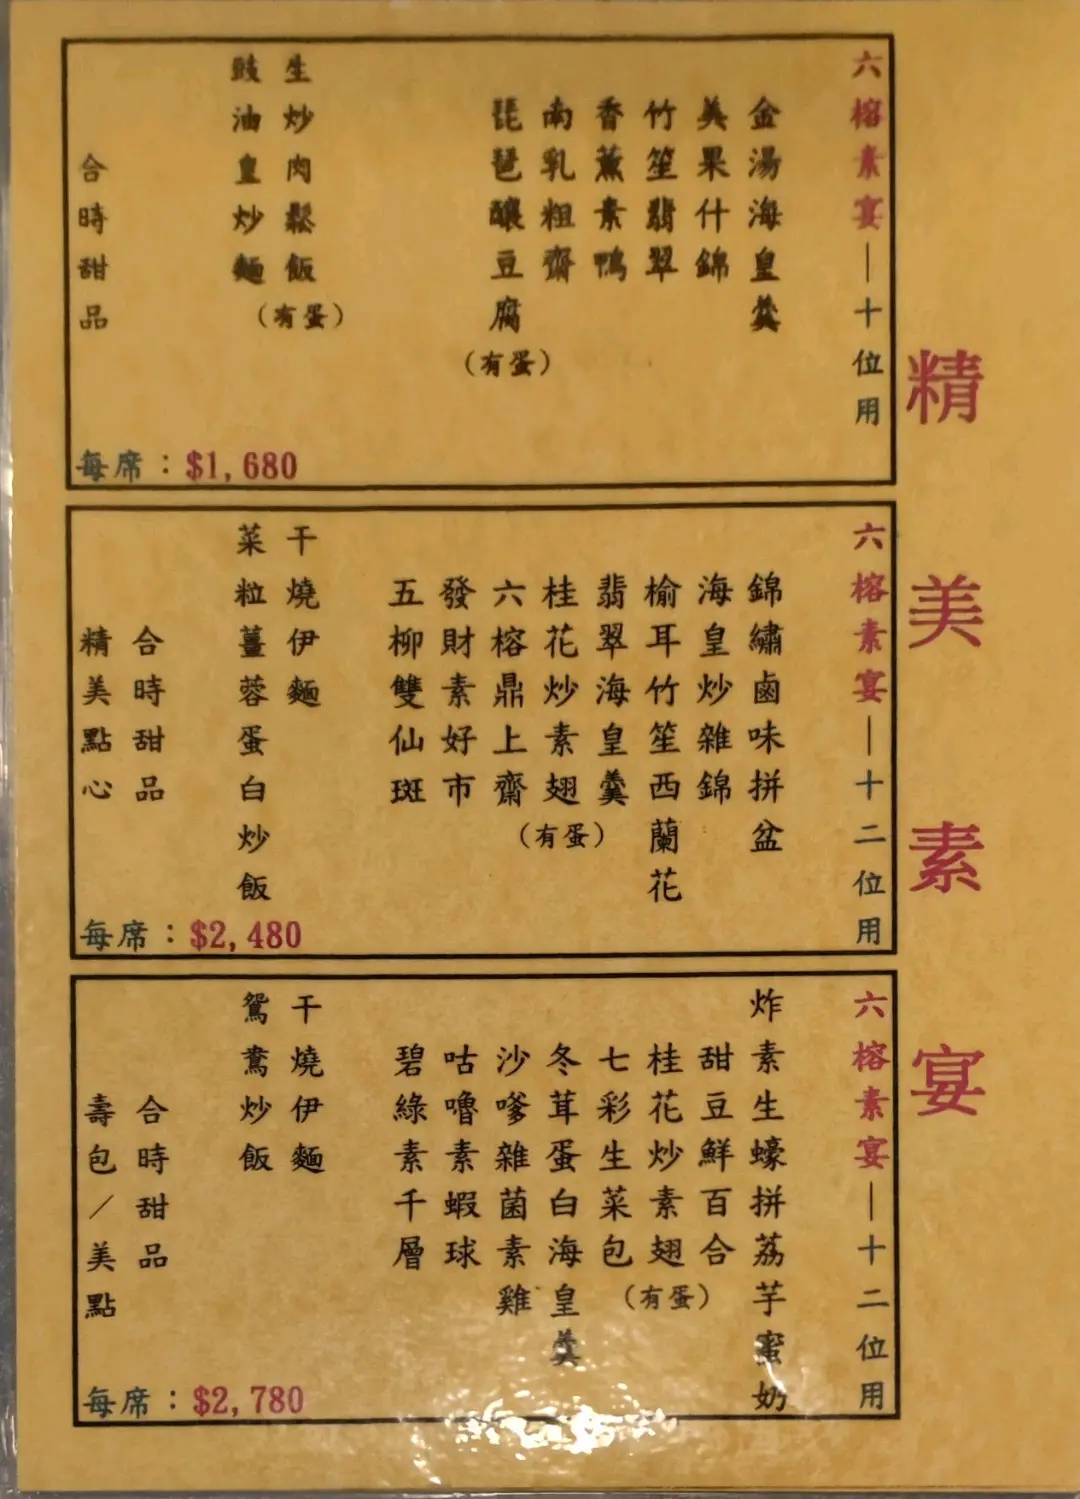 精美素宴
六榕素宴—十位用
金湯海皇羹
美果什錦
竹笙翡翠
香薰素鴨
南乳粗齋
琵琶釀豆腐
(有蛋)
生炒肉鬆飯
(有蛋)
豉油皇炒麵
合時甜品
每席：$1,680
六榕素宴—十二位用
錦繡鹵味拼盆
海皇炒雜錦
榆耳竹笙西蘭花
翡翠海皇羹
桂花炒素翅
(有蛋)
六榕鼎上齋
發財素好市
五柳雙仙斑
干燒伊麵
菜粒薑蓉蛋白炒飯
合時甜品
精美點心
每席：$2,480
六榕素宴—十二位用
炸素生蠔拼荔芋蜜奶
甜豆鮮百合
桂花炒素翅
(有蛋)
七彩生菜包
冬茸蛋白海皇羹
沙嗲雜菌素雞
咕嚕素蝦球
碧綠素千層
干燒伊麵
鴛鴦炒飯
合時甜品
壽包/美點
每席：$2,780